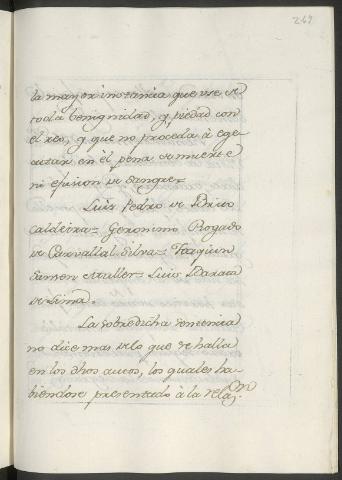 269
la mayor instancia que use de
toda benignidad, y piedad con
el reo, y que no proceda à ege-
cutar en èl pena de muerte
ni efusion de sangre=
Luis Pedro de Brito
Caldeira= Geronimo Rogado
de Carvallal Silva= Joaquin
Jansen Muller= Luis Barata
de Lima.
La sobredicha sentencia
no dice mas delo que se halla
en los dhos autos, los quales ha-
biendose presentado à la relaon.